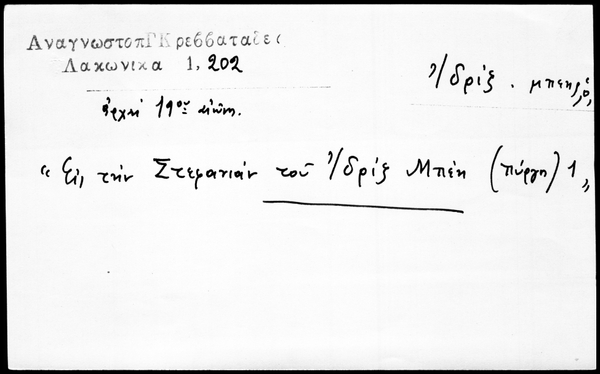 ΑναγνωστοπΓΚρεββαταδες
Λακωνικα 1, 202
Ἰδρίξ . μπεης, ὁ,
ἀρχαί 19ου αἰῶν.
“ Εἰς τὴν Στεφανιάν τοῦ Ἰδρίξ Μπέη (πύργοι) 1 „